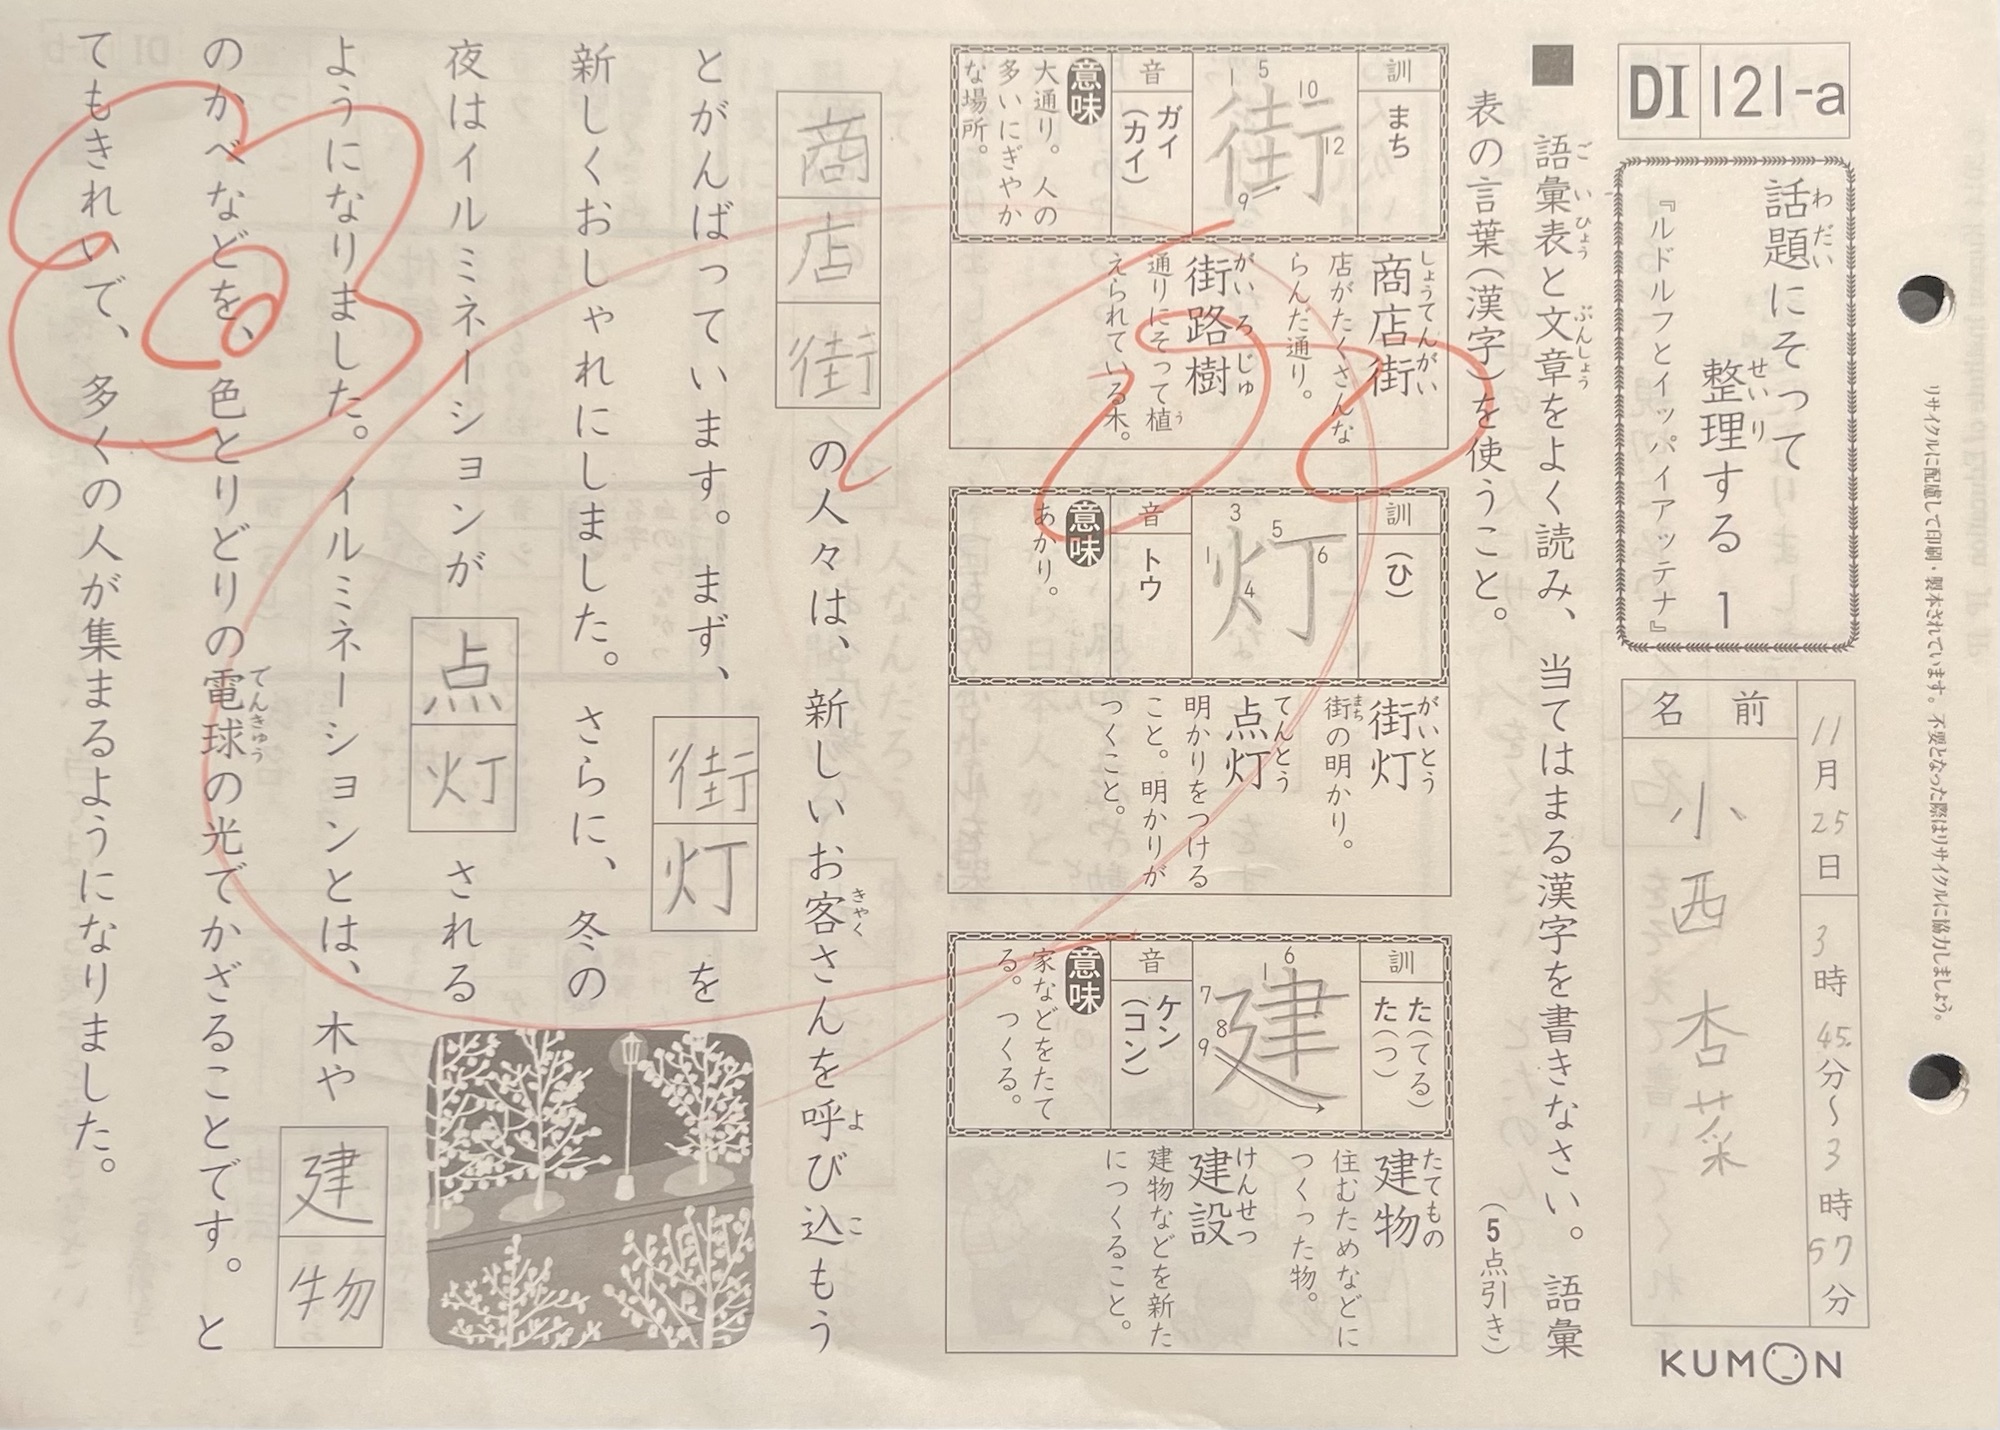 DI 121-a
話題にそって
整理する 1
わだい
せいり
『ルドルフとイッパイアッテナ』
11月25日
3時45分〜3時57分
名前
小西杏菜
KUMON
リサイクルに配慮して印刷・製本されています。不要となった際はリサイクルに協力しましょう。
■ 語彙表と文章をよく読み、当てはまる漢字を書きなさい。語彙
ごいひょう
ぶんしょう
表の言葉(漢字)を使うこと。
(5点引き)
訓 まち
街
1 5 10 12 9
音 ガイ
(カイ)
意味
大通り。人の
多いにぎやか
な場所。
しょうてんがい
商店街
店がたくさんな
らんだ通り。
がいろじゅ
街路樹
通りにそって植
う
えられている木。
訓 (ひ)
灯
3 5 1 4 6
音 トウ
意味
あかり。
がいとう
街灯
まち
街の明かり。
てんとう
点灯
明かりをつける
こと。明かりが
つくこと。
訓 た(てる)
た(つ)
建
6 1 7 8 9
音 ケン
(コン)
意味
家などをたて
る。つくる。
たてもの
建物
住むためなどに
つくった物。
けんせつ
建設
建物などを新た
につくること。
商店街の人々は、新しいお客さんを呼び込もう
きゃく
よ
こ
とがんばっています。まず、街灯を
新しくおしゃれにしました。さらに、冬の
夜はイルミネーションが点灯される
ようになりました。イルミネーションとは、木や建物
のかべなどを、色とりどりの電球の光でかざることです。と
でんきゅう
てもきれいで、多くの人が集まるようになりました。